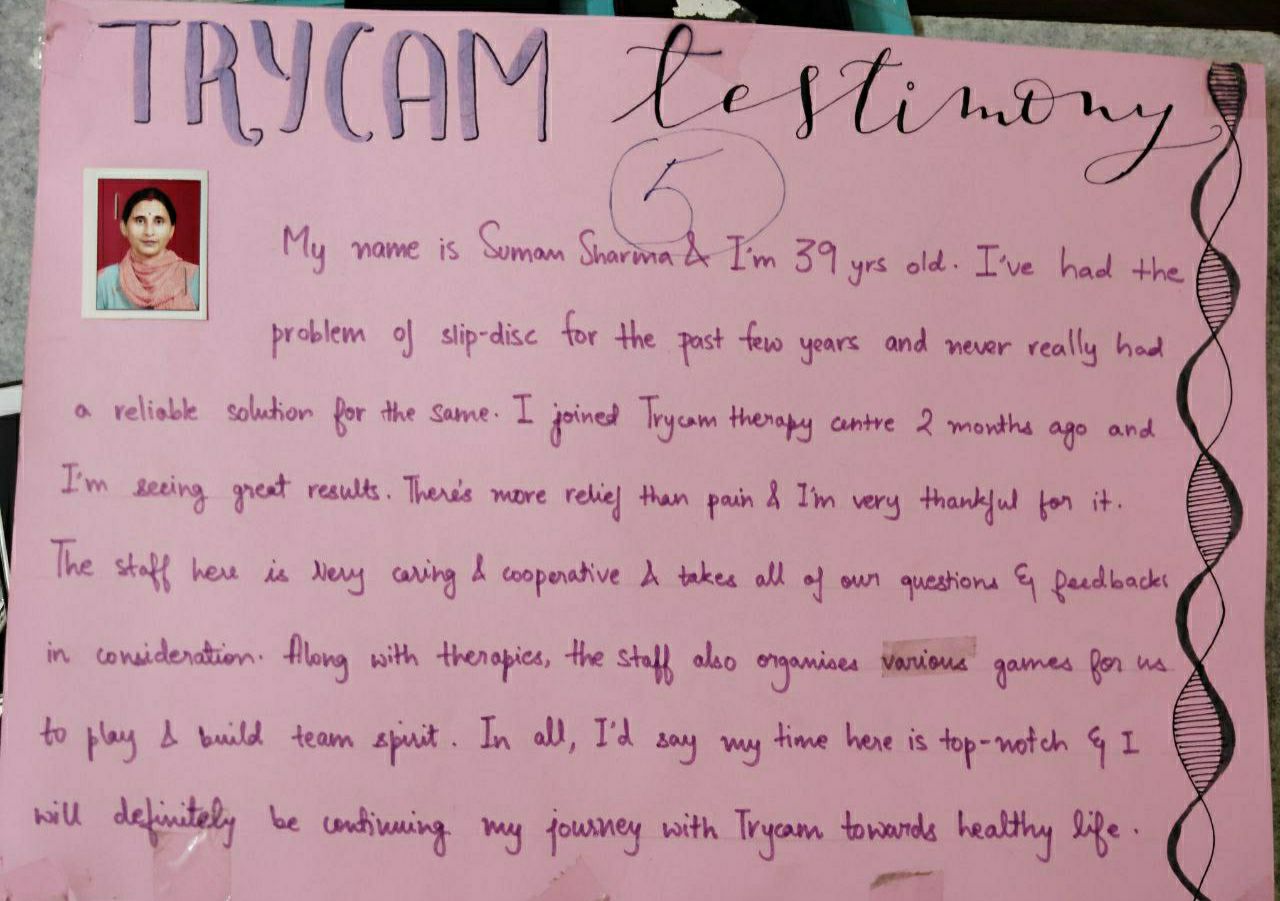 TRYCAM testimony
5
My name is Suman Sharma & I'm 39 yrs old. I've had the
problem of slip-disc for the past few years and never really had
a reliable solution for the same. I joined Trycam therapy centre 2 months ago and
I'm seeing great results. There's more relief than pain & I'm very thankful for it.
The staff here is very caring & cooperative & takes all of our questions & feedbacks
in consideration. Along with therapies, the staff also organises various games for us
to play & build team spirit. In all, I'd say my time here is top-notch & I
will definitely be continuing my journey with Trycam towards healthy life.